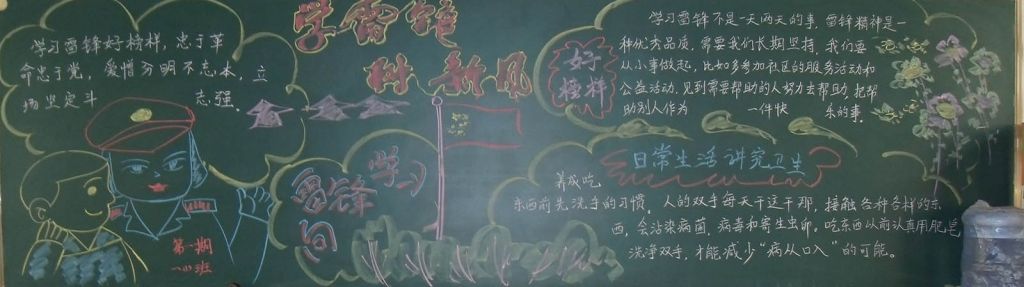 学习雷锋好榜样，忠于革
命忠于党，爱憎分明不忘本，立
场坚定斗 志强。
学雷锋
树新风
向雷锋学习
第一期
一(1)班
好榜样
学习雷锋不是一天两天的事，雷锋精神是一
种优秀品质，需要我们长期坚持，我们要
从小事做起，比如多参加社区的服务活动和
公益活动，见到需要帮助的人努力去帮助，把帮
助别人作为 一件快 乐的事。
日常生活讲究卫生
养成吃
东西前先洗手的习惯。人的双手每天干这干那，接触各种各样的东
西，会沾染病菌、病毒和寄生虫卵。吃东西以前认真用肥皂
洗净双手，才能减少“病从口入”的可能。